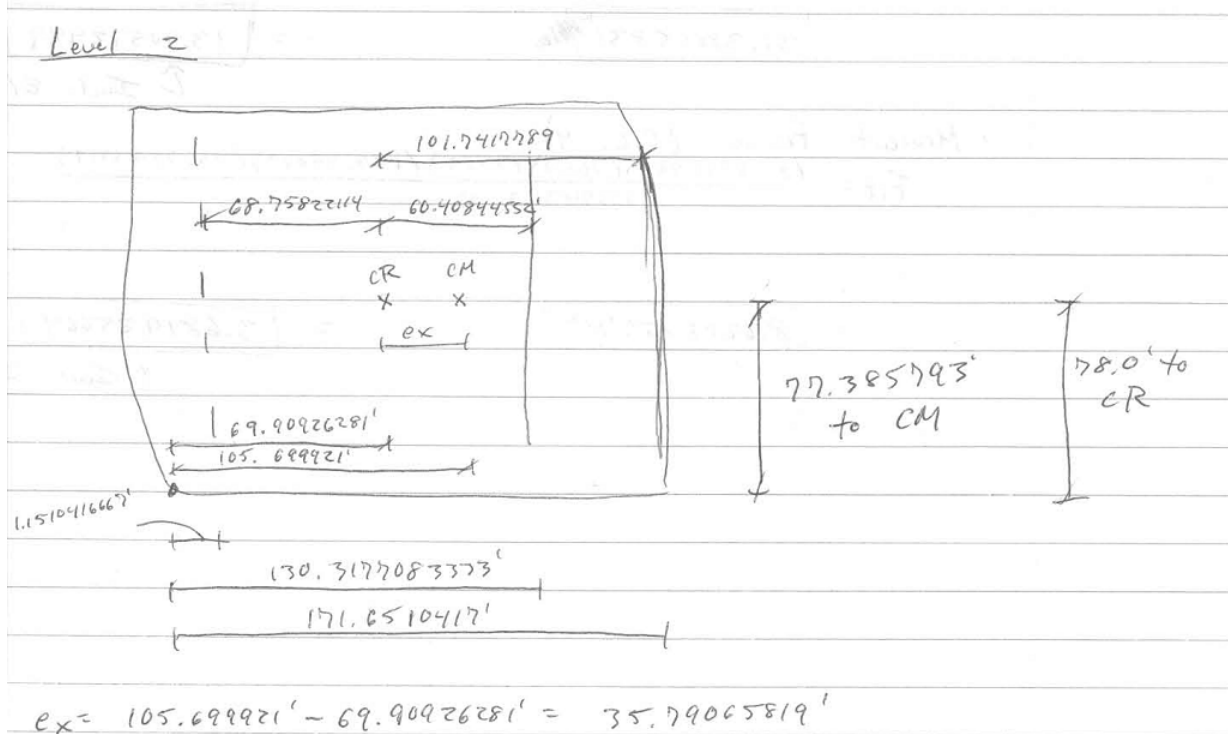 Level 2
101.7417789
68.75822114 60.40844552'
CR CM
x x
ex
69.90926281'
105.699921'
77.385793'
to CM
78.0' to
CR
1.1510416667'
130.3177083333'
171.6510417'
ex = 105.699921' - 69.90926281' = 35.79065819'